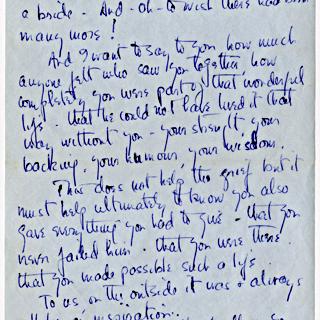 a bride - And - oh - to wish there had been
many more!
And I want to say to you how much
anyone felt who saw you together, how
completely you were part of that wonderful
life - that he could not have lived it that
way without you - your strength, your
backing, your humour, your wisdom.
This does not help the grief but it
must help ultimately to know you also
gave everything you had to give - that you
never failed him - that you were there -
that you made possible such a life.
To us on the outside it was always
inspiration.